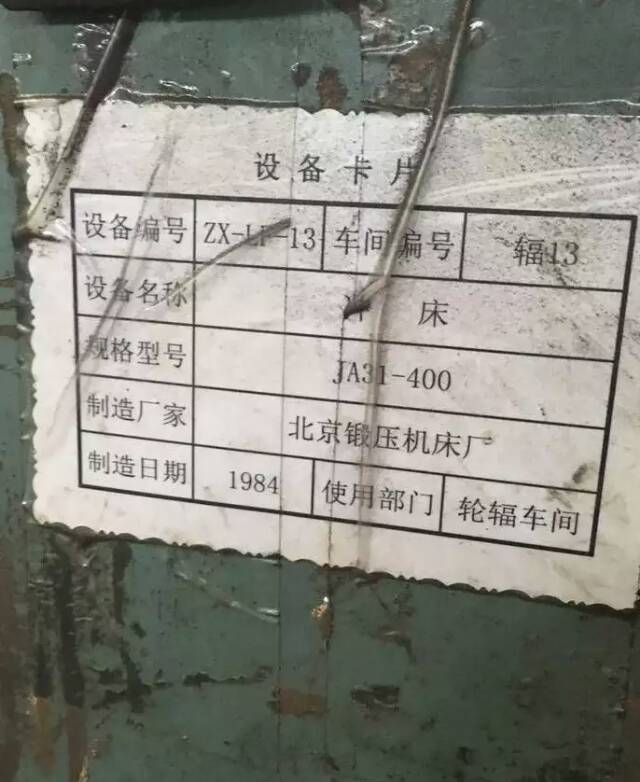 设备卡片
设备编号 ZX-LF-13 车间编号 辐13
设备名称 冲床
规格型号 JA31-400
制造厂家 北京锻压机床厂
制造日期 1984 使用部门 轮辐车间